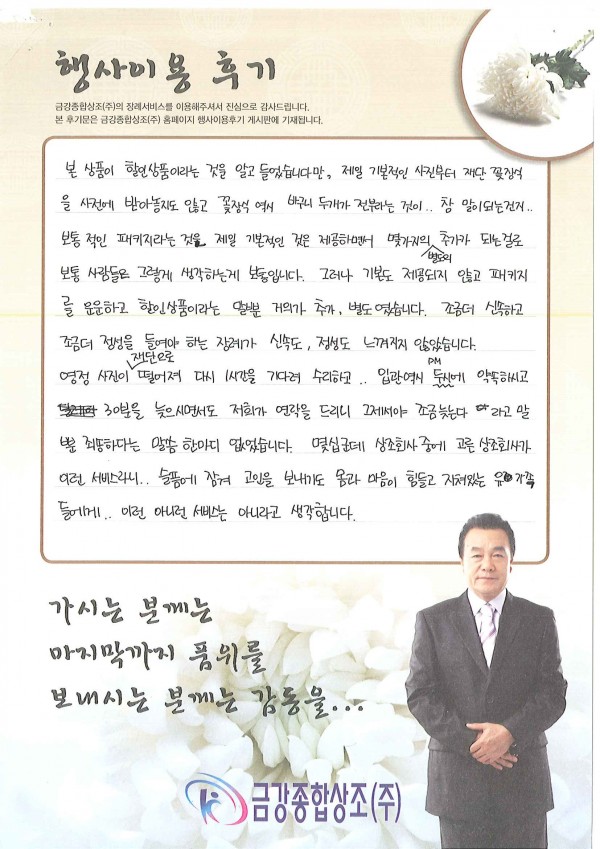 행사이용 후기
금강종합상조(주)의 장례서비스를 이용해주셔서 진심으로 감사드립니다.
본 후기문은 금강종합상조(주) 홈페이지 행사이용후기 게시판에 기재됩니다.
본 상품이 할인상품이라는 것을 알고 들었습니다만, 제일 기본적인 사진부터 재단 꽃장식
을 사전에 받아놓지도 않고 꽃장식 역시 바구니 두개가 전부라는 것이.. 참 말이되는건지..
보통적인 패키지라는 것을 제일 기본적인 것은 제공하면서 몇가지의 별도의 추가가 되는걸로
보통 사람들은 그렇게 생각하는게 보통입니다. 그러나 기본도 제공되지 않고 패키지
를 운운하고 할인상품이라는 말뿐 거의가 추가, 별도였습니다. 조금더 신속하고
조금더 정성을 들여야 하는 장례가 신속도, 정성도 느껴지지 않았습니다.
영정 사진이 재단으로 떨어져 다시 1시간을 기다려 수리하고.. 입관역시 PM 두시에 약속하시고
30분을 늦으시면서도 저희가 연락을 드리니 그제서야 조금늦는다 라고 말
뿐 죄송하다는 말씀 한마디 없었습니다. 몇십군데 상조회사 중에 고른 상조회사가
이런 서비스라니.. 슬픔에 잠겨 고인을 보내기도 몸과 마음이 힘들고 지쳐있는 유가족
들에게.. 이런 아니런 서비스는 아니라고 생각합니다.
가시는 분께는
마지막까지 품위를
보내시는 분께는 감동을...
금강종합상조(주)